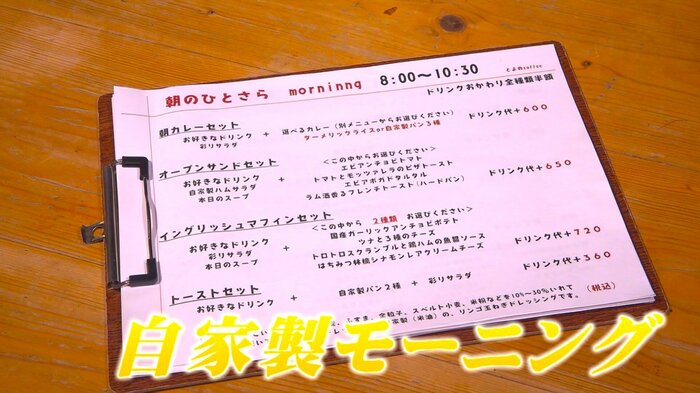 朝のひとさら morninng 8:00〜10:30
とよのcoffee
ドリンクおかわり全種類半額
朝カレーセット
お好きなドリンク + 選べるカレー(別メニューからお選びください) ドリンク代+600
彩りサラダ ターメリックライスor自家製パン3種
オープンサンドセット <この中からお選びください>
お好きなドリンク + エビアンチョビトマト ドリンク代+650
自家製ハムサラダ トマトとモッツァレラのピザトースト
本日のスープ エビアボガドタルタル
ラム酒香るフレンチトースト(ハードパン)
イングリッシュマフィンセット <この中から 2種類 お選びください>
お好きなドリンク + 国産ガーリックアンチョビポテト ドリンク代+720
彩りサラダ ツナと3種のチーズ
本日のスープ トロトロスクランブルと鶏ハムの魚醤ソース
はちみつ林檎シナモンレアクリームチーズ
トーストセット
お好きなドリンク + 自家製パン2種 + 彩りサラダ ドリンク代+360
(税込)
ふすま、全粒子、スペルト小麦、米粉などを10%〜30%いれて
家製(米油)の、リンゴ玉ねぎドレッシングです。
自家製モーニング